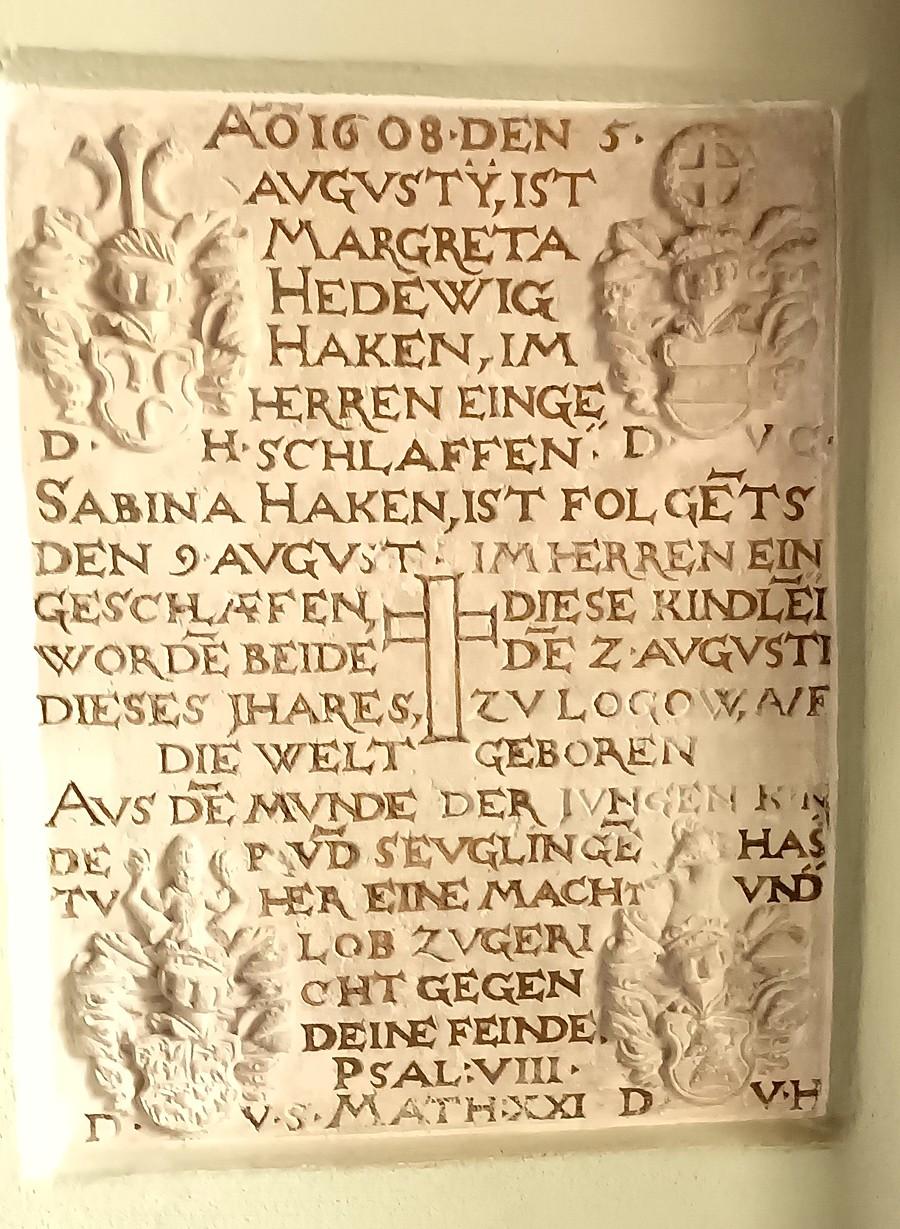 AÕ 1608·DEN 5·
AVGVSTŸ, IST
MARGRETA
HEDEWIG
HAKEN, IM
HERREN EINGE
D· H· SCHLAFFEN· D· V C·
SABINA HAKEN, IST FOLGĒTS
DEN 9·AVGVST· IM HERREN EIN
GESCHLAFFEN, DIESE KINDLĒI
WORDĒ BEIDE DĒ 2·AVGVSTI
DIESES JHARES, ZV LOGOW, AVF
DIE WELT GEBOREN
AVS DĒ MVNDE DER IVNGEN KIN
DE VD̄ SEVGLINGĒ HAS
TV HER EINE MACHT VND
LOB ZVGERI
CHT GEGEN
DEINE FEINDE.
PSAL:VIII·
D· V·S· MATH:XXI D V·H